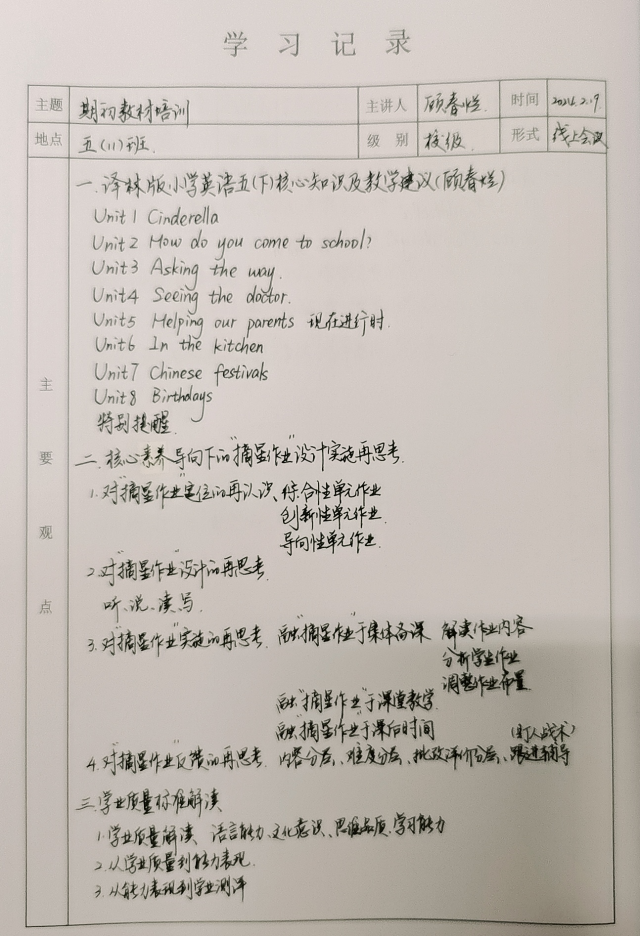 学习记录
主题 期初教材培训 主讲人 顾春烂 时间 2024.2.19
地点 五(11)班 级别 校级 形式 线上会议
主要观点
一.译林版小学英语五(下)核心知识及教学建议(顾春烂)
Unit1 Cinderella
Unit2 How do you come to school?
Unit3 Asking the way.
Unit4 Seeing the doctor.
Unit5 Helping our parents 现在进行时.
Unit6 In the kitchen
Unit7 Chinese festivals
Unit8 Birthdays
特别提醒
二.核心素养导向下的"摘星作业"设计实施再思考.
1.对"摘星作业"定位的再认识.综合性单元作业
创新性单元作业.
导向性单元作业.
2.对"摘星作业"设计的再思考.
听、说、读、写.
3.对"摘星作业"实施的再思考. 融"摘星作业"于集体备课 解读作业内容
分析学生作业
调整作业布置
融"摘星作业"于课堂教学.
融"摘星作业"于课后时间
(盯人战术)
4.对"摘星作业"反馈的再思考. 内容分层、难度分层、批改评价分层、跟进辅导
三.学业质量标准解读
1.学业质量解读 语言能力、文化意识、思维品质、学习能力
2.从学业质量到能力表现.
3.从能力表现到学业测评